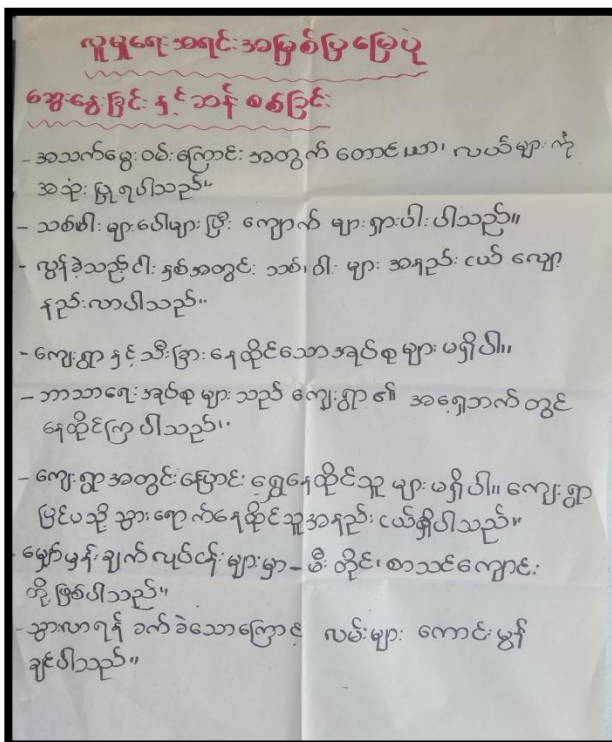 လူမှုရေးအရင်းအမြစ်ပြမြေပုံ
ဆွေးနွေးခြင်းနှင့်ဆန်းစစ်ခြင်း
- အသက်မွေးဝမ်းကြောင်းအတွက် တောင်ယာ၊ လယ်များကို
အသုံးပြုရပါသည်။
- သစ်ဝါးများပေါများပြီး ကျောက်များရှားပါးပါသည်။
- လွန်ခဲ့သည့်ငါးနှစ်အတွင်း သစ်၊ဝါးများ အနည်းငယ်လျော့
နည်းလာပါသည်။
- ကျေးရွာနှင့်သီးခြားနေထိုင်သောအုပ်စုများမရှိပါ။
- ဘာသာရေးအုပ်စုများသည် ကျေးရွာ၏ အရှေ့ဘက်တွင်
နေထိုင်ကြပါသည်။
- ကျေးရွာအတွင်းပြောင်းရွှေ့နေထိုင်သူများမရှိပါ။ ကျေးရွာ
ပြင်ပသို့သွားရောက်နေထိုင်သူအနည်းငယ်ရှိပါသည်။
- မျှော်မှန်းချက်လုပ်ငန်းများမှာ - မီးတိုင်၊စာသင်ကျောင်း
တို့ဖြစ်ပါသည်။
- သွားလာရန်ခက်ခဲသောကြောင့် လမ်းများ ကောင်းမွန်
ချင်ပါသည်။